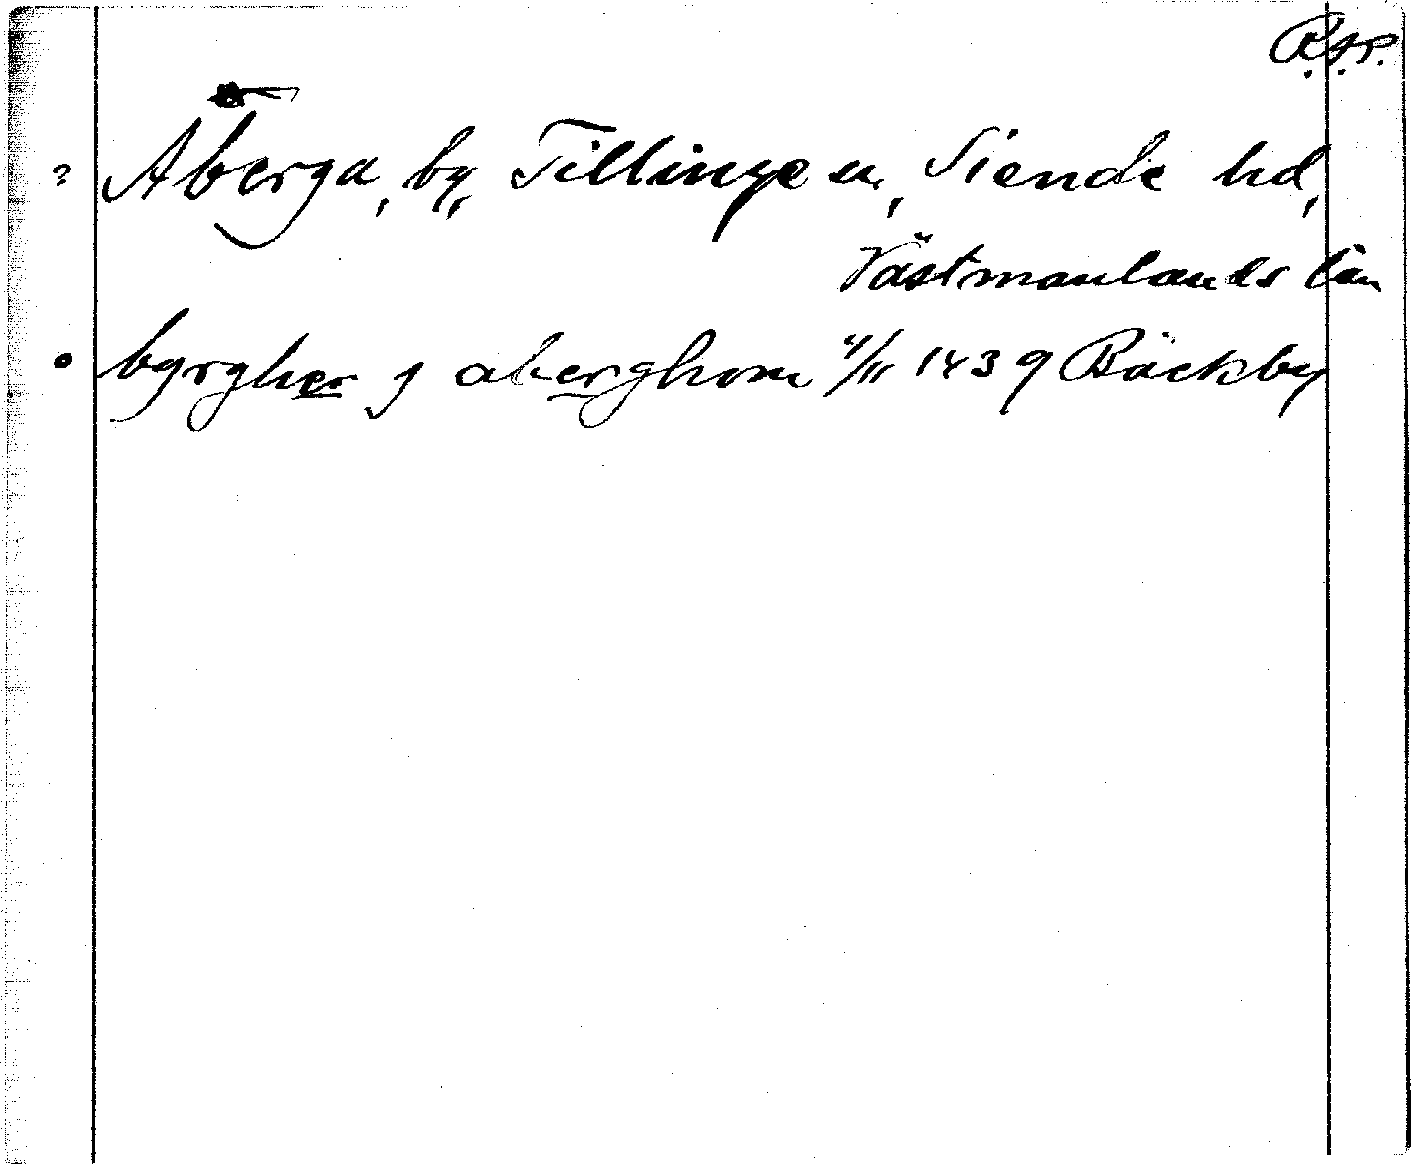 R.S.P.
? Åberga, by, Tillinge sn, Siende hd,
Västmanlands län
byrgher j aberghom 4/11 1439 Bäckby